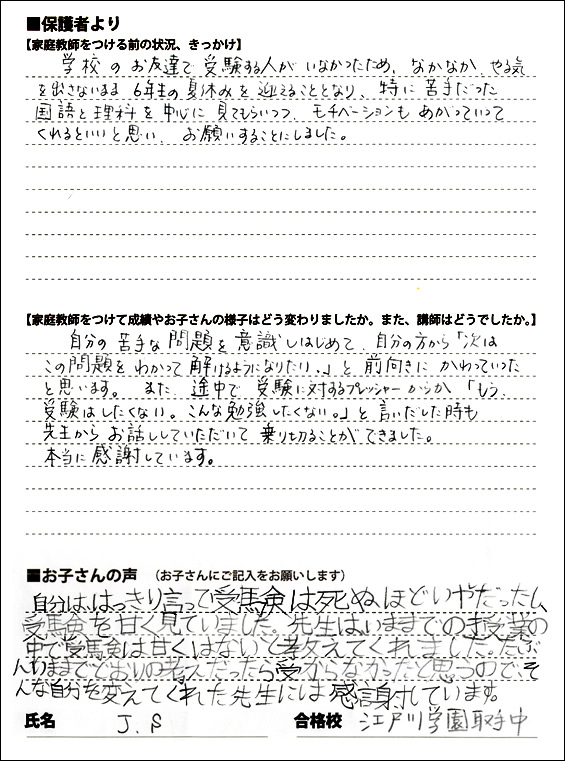 ■保護者より
【家庭教師をつける前の状況、きっかけ】
学校のお友達で受験する人がいなかったため、なかなかやる気
を出さないまま6年生の夏休みを迎えることとなり、特に苦手だった
国語と理科を中心に見てもらいつつ、モチベーションもあがっていって
くれるといいと思い、お願いすることにしました。
【家庭教師をつけて成績やお子さんの様子はどう変わりましたか。また、講師はどうでしたか。】
自分の苦手な問題を意識しはじめて、自分の方から「次は
この問題をわかって解けるようになりたい。」と前向きにかわっていった
と思います。また、途中で受験に対するプレッシャーからか「もう
受験はしたくない。こんな勉強したくない。」と言いだした時も
先生からお話ししていただいて乗り切ることができました。
本当に感謝しています。
■お子さんの声 (お子さんにご記入をお願いします)
自分は、はっきり言って受験は死ぬほどいやだったし、
受験を甘く見ていました。先生はいままでの授業の
中で受験は甘くはないと教えてくれました。たぶ
んいままでどおりの考えだったら受からなかったと思うので、そ
んな自分を変えてくれた先生には感謝しています。
氏名 J.S 合格校 江戸川学園取手中